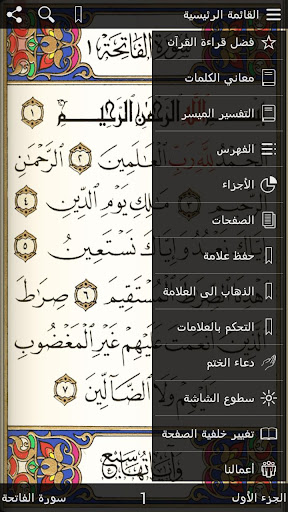 القائمة الرئيسية
فضل قراءة القرآن
معاني الكلمات
التفسير الميسر
الفهرس
الأجزاء
الصفحات
حفظ علامة
الذهاب الى العلامة
التحكم بالعلامات
دعاء الختم
سطوع الشاشة
تغيير خلفية الصفحة
أعمالنا
سُورَةُ الفَاتِحَةِ ١
بِسْمِ ٱللَّهِ ٱلرَّحْمَٰنِ ٱلرَّحِيمِ ١
ٱلْحَمْدُ لِلَّهِ رَبِّ ٱلْعَٰلَمِينَ ٢ ٱلرَّحْمَٰنِ
ٱلرَّحِيمِ ٣ مَٰلِكِ يَوْمِ ٱلدِّينِ
٤ إِيَّاكَ نَعْبُدُ وَإِيَّاكَ نَسْتَعِينُ
٥ ٱهْدِنَا ٱلصِّرَٰطَ ٱلْمُسْتَقِيمَ ٦ صِرَٰطَ
ٱلَّذِينَ أَنْعَمْتَ عَلَيْهِمْ غَيْرِ ٱلْمَغْضُوبِ
عَلَيْهِمْ وَلَا ٱلضَّآلِّينَ ٧
وآياتها سبع
الجزء الأول 1 سورة الفاتحة